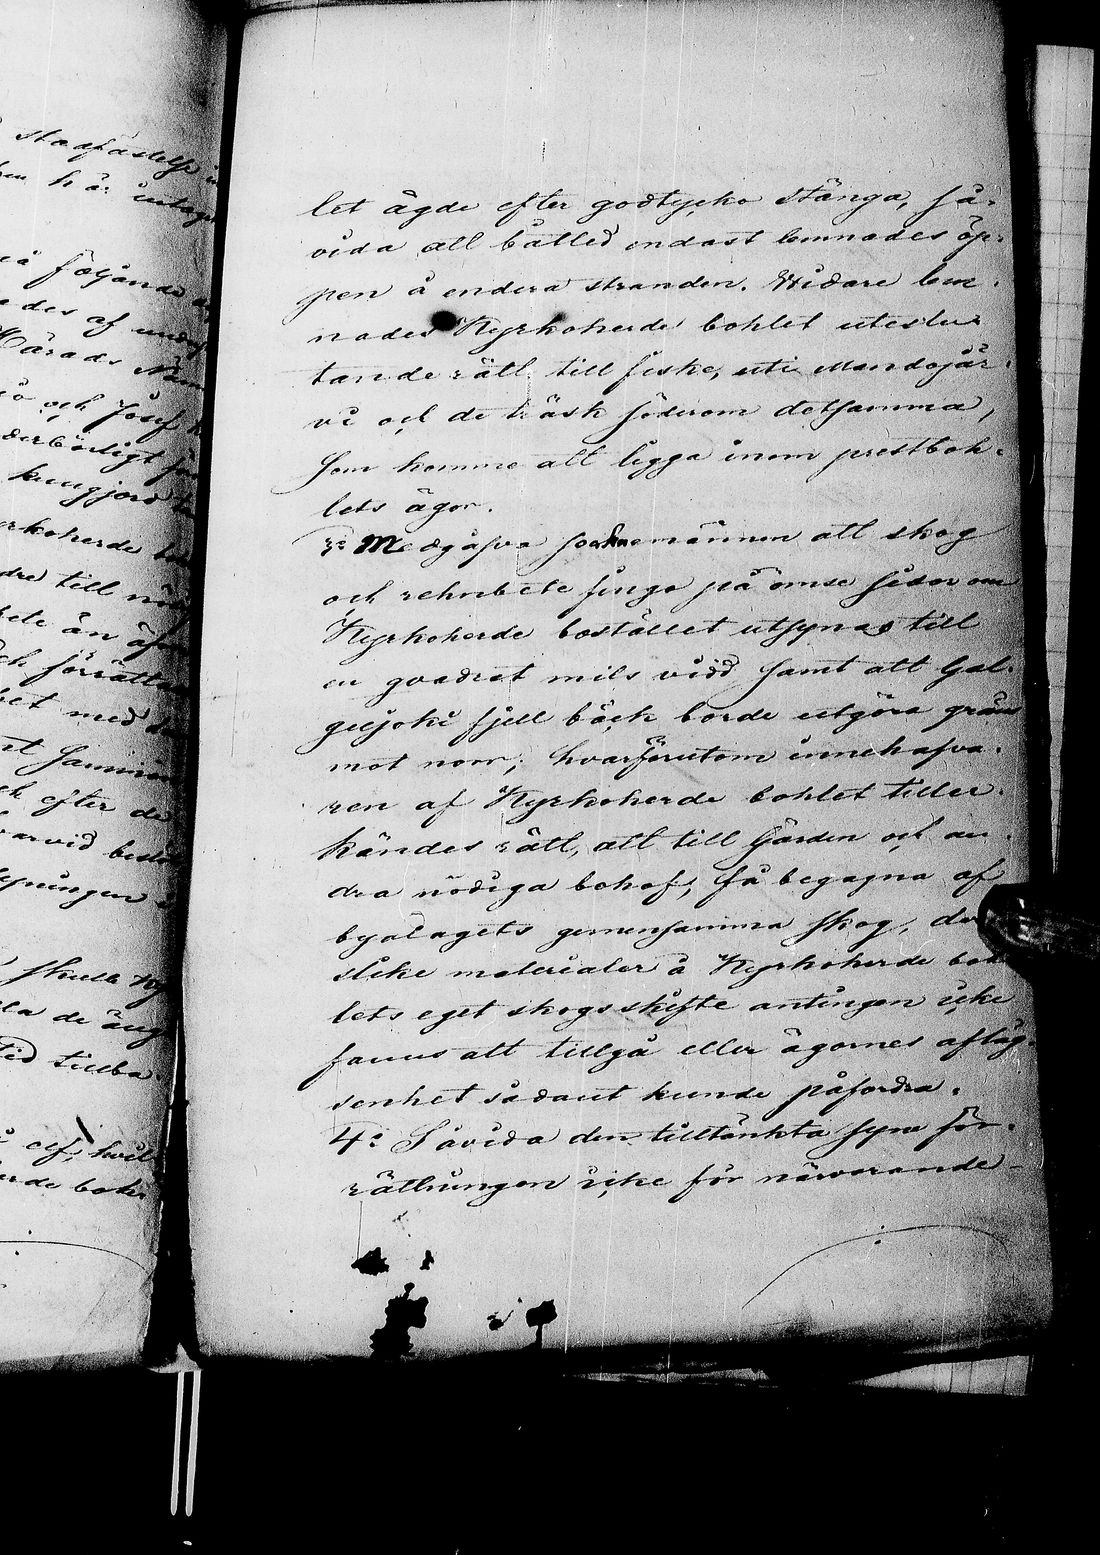 stadfästelse
här intaget
följande
ades af
Härads
och Josef
kungjord
kyrkoherde
dre till
bete än
och förrättat
bet med
efter de
varvid
skulle
la de äng
tid tillba-
elf, hvil-
erde boh-
let ägde efter godtycke stänga, så-
vida att båtled endast lemnades öp-
pen å endera stranden. Widare lem-
nades Kyrkoherde bohlet uteslu-
tande rätt till fiske, uti Mandojär-
vi och de träsk söderom detsamma,
som komme att ligga inom prestboh-
lets ägor.
3:o Medgåfvo sockenemännen att skog
och rehnbete finge på ömse sidor om
Kyrkoherde bostället utsynas till
en qvadrat mils vidd samt att Gal-
gujoki fjell bäck borde utgöra gräns
mot norr; hvarförutom innehafva-
ren af Kyrkoherde bohlet tiller-
kändes rätt, att till Gården och an-
dra nödiga behof, få begagna af
byalagets gemensamma skog, der
slike materialer å Kyrkoherde boh-
lets eget skogsskifte antingen icke
fanns att tillgå eller ägornes afläg-
senhet sådant kunde påfordra.
4:o Såvida den tilltänkta syne för-
rättningen icke för närvarande